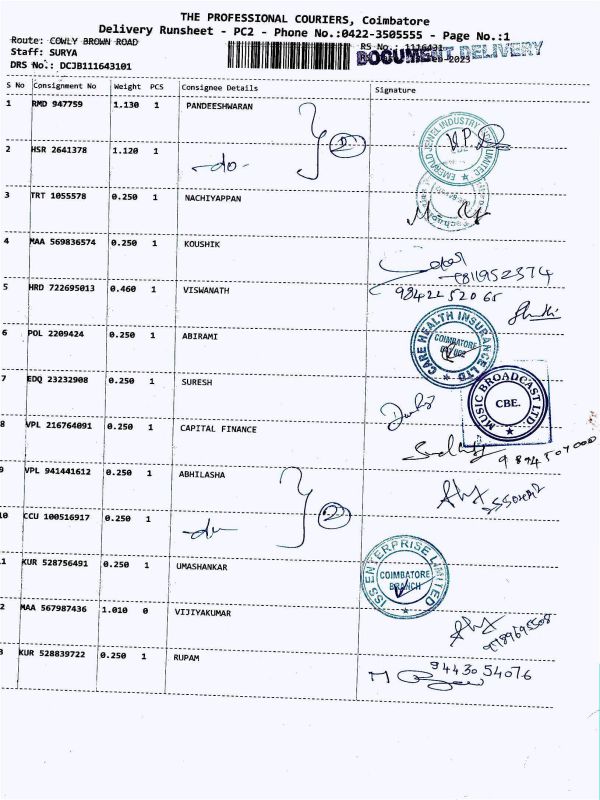 THE PROFESSIONAL COURIERS, Coimbatore
Delivery Runsheet - PC2 - Phone No.:0422-3505555 - Page No.:1
Route: COWLY BROWN ROAD
RS No.: 1116431
DOCUMENT DELIVERY
Staff: SURYA
DRS No.: DCJB111643101
S No Consignment No Weight PCS Consignee Details Signature
1 RMD 947759 1.130 1 PANDEESHWARAN
2
EMERALD JEWEL INDUSTRY LIMITED
2 HSR 2641378 1.120 1 -do-
3 TRT 1055578 0.250 1 NACHIYAPPAN
4 MAA 569836574 0.250 1 KOUSHIK
5 HRD 722695013 0.460 1 VISWANATH
6 POL 2209424 0.250 1 ABIRAMI
CARE HEALTH INSURANCE LTD
COIMBATORE
7 EDQ 23232908 0.250 1 SURESH
MUSIC BROADCAST LTD
CBE.
8 VPL 216764091 0.250 1 CAPITAL FINANCE
9 VPL 941441612 0.250 1 ABHILASHA
2
10 CCU 100516917 0.250 1 -do-
1 KUR 528756491 0.250 1 UMASHANKAR
ISS ENTERPRISE LIMITED
COIMBATORE
BRANCH
2 MAA 567987436 1.010 0 VIJIYAKUMAR
3 KUR 528839722 0.250 1 RUPAM
9443054076